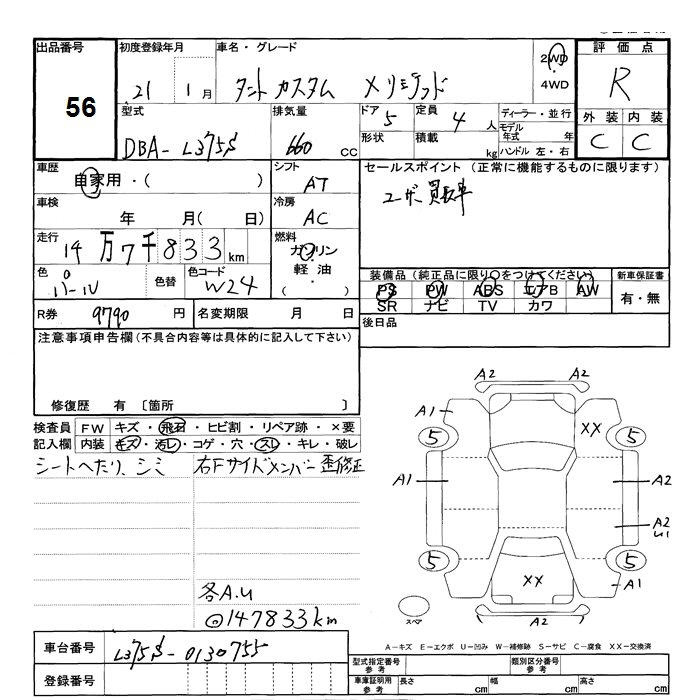 出品番号
56
初度登録年月
21 1月
車名・グレード
タント カスタム メモリアルエディション
2WD
4WD
評価点
R
外装 内装
C C
型式
DBA-L375S
排気量
660 cc
ドア
5
定員
4 人
形状
積載 kg
ディーラー・並行
モデル年式 年
ハンドル 左・右
車歴
自家用・( )
シフト
AT
セールスポイント (正常に機能するものに限ります)
ユーザー買取車
車検
年 月( 日)
冷房
AC
走行
14万7千833km
燃料
ガソリン
軽油
・( )
色
パール
色替
色コード
W24
装備品 (純正品に限り〇をつけてください)
PS PW ABS エアB AW
SR ナビ TV カワ
新車保証書
有・無
R券 9790 円
名変期限 月 日
後日品
注意事項申告欄(不具合内容等は具体的に記入して下さい)
修復歴 有 〔箇所 〕
検査員 FW キズ・飛石・ヒビ割・リペア跡・×要
記入欄 内装 キズ・汚レ・コゲ・穴・スレ・キレ・破レ
シートヘたり、シミ
右Fサイドメンバー 歪修正
各A.U
@147833km
A2 A2
A1 XX
5 5
A1 A2
A2
U1
5 5
XX A1
スペア A2
A-キズ E-エクボ U-凹み W-補修跡 S-サビ C-腐食 XX-交換済
車台番号
L375S-0130755
登録番号
型式指定番号
参考
類別区分番号
参考
車庫証明用
参考
長さ cm 幅 cm 高さ cm